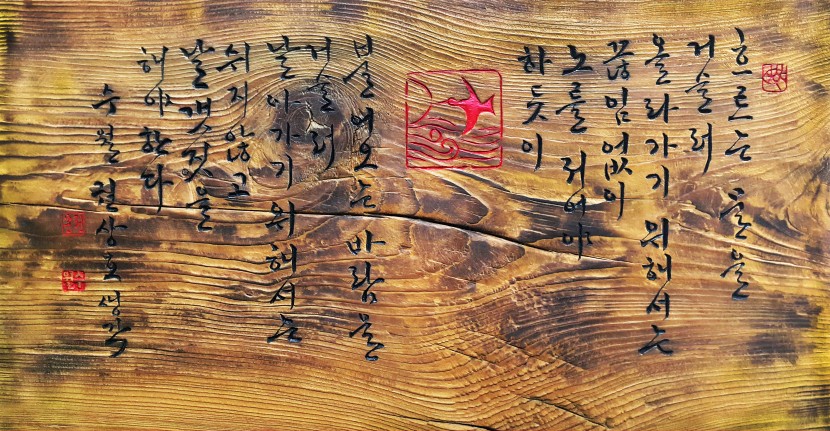 흐르는 물을
거슬러
올라가기 위해서는
끊임없이
노를 저어야
하듯이
불어오는 바람을
거슬러
날아가기 위해서는
쉬지않고
날갯짓을
해야한다
수월 현상호 생각